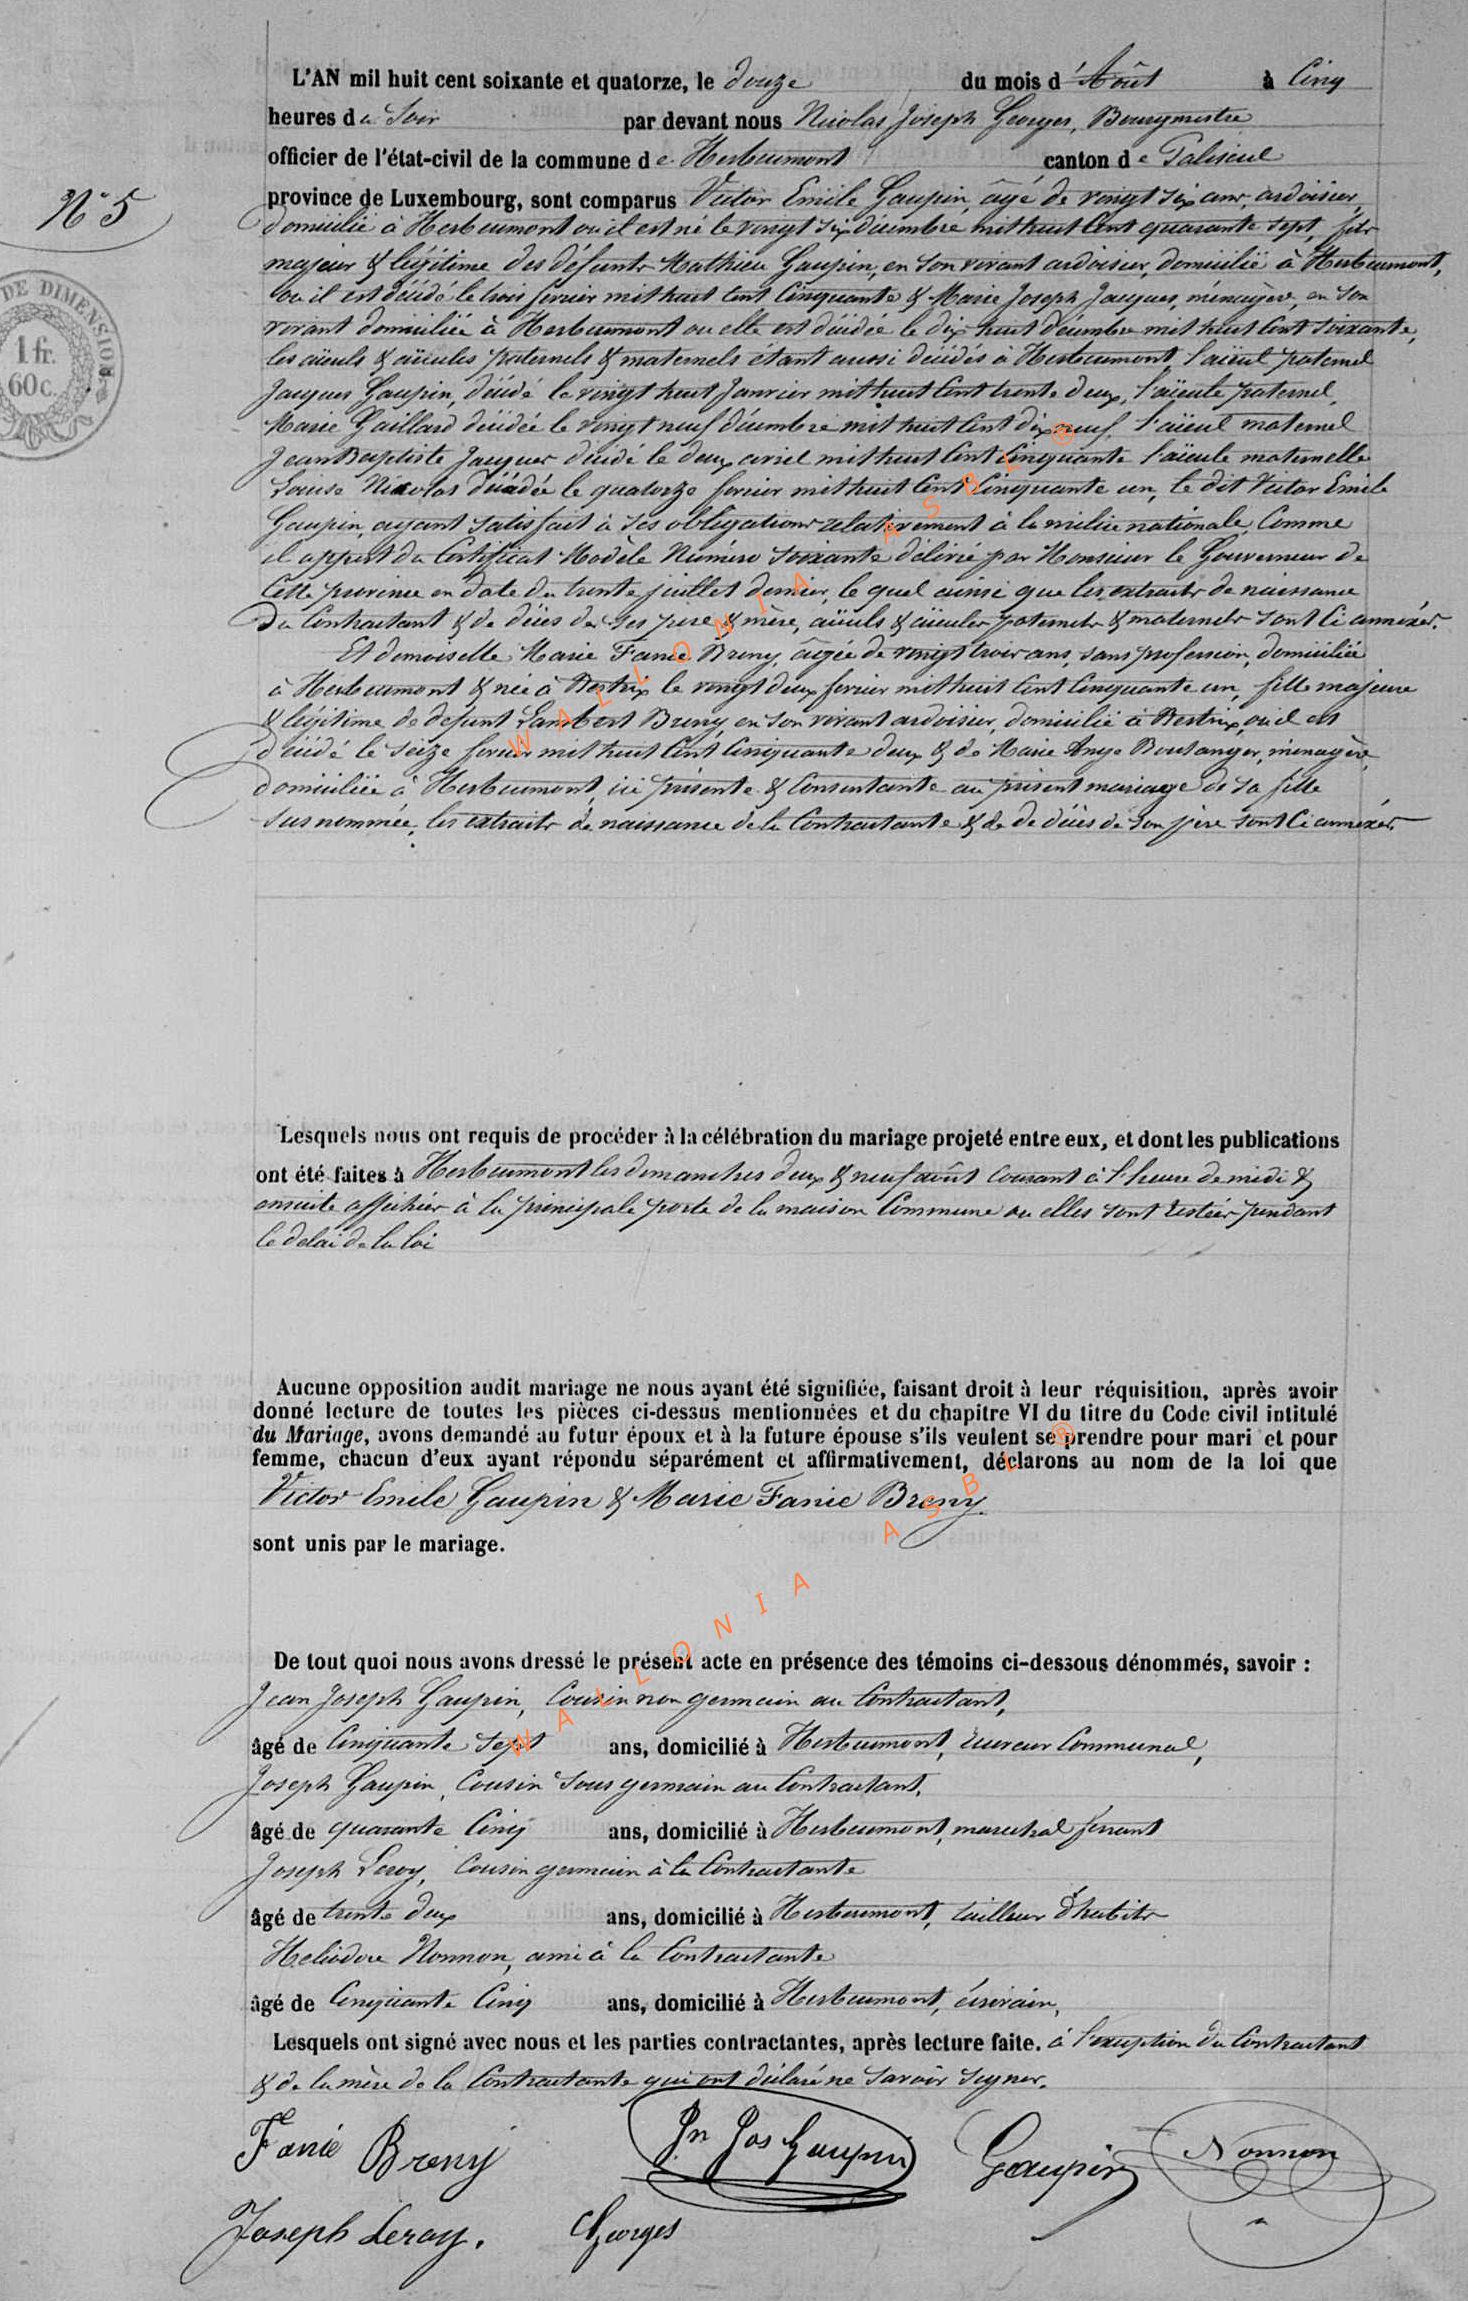 L'AN mil huit cent soixante et quatorze, le douze du mois d'Août à Cinq
heures du Soir par devant nous Nicolas Joseph Georges, Bourgmestre
officier de l'état-civil de la commune de Herbeumont canton de Paliseul
N° 5
province de Luxembourg, sont comparus Victor Emile Gaupin, âgé de vingt six ans, ardoisier,
domicilié à Herbeumont où il est né le vingt six décembre mil huit Cent quarante sept, fils
majeur & légitime des défunts Mathieu Gaupin, en son vivant ardoisier, domicilié à Herbeumont,
où il est décédé le trois février mil huit cent Cinquante & Marie Joseph Jacques, ménagère, en son
vivant domiciliée à Herbeumont ou elle est décédée le dix huit décembre mil huit Cent soixante,
DE DIMENSION
1 fr.
60 c.
les aïeuls & aïeules paternels & maternels étant aussi décédés à Herbeumont l'aïeul paternel
Jacques Gaupin, décédé le vingt huit Janvier mil huit Cent trente deux, l'aïeule paternel,
Marie Gaillard décédée le vingt neuf décembre mil huit Cent dix neuf, l'aïeul maternel
Jean Baptiste Jacques décédé le deux avril mil huit Cent Cinquante l'aïeule maternelle
Louise Nicolas décédée le quatorze février mil huit Cent Cinquante un, le dit Victor Emile
Gaupin, ayant satisfait à ses obligations relativement à la milice nationale, Comme
il appert du Certificat Modèle Numéro soixante délivré par Monsieur le Gouverneur de
Cette province en date du trente juillet dernier, le quel ainsi que les extraits de naissance
du Contractant & de décès de ses père & mère, aïeuls & aïeules paternels & maternels sont Ci annexés.
Et demoiselle Marie Fanie Breny, âgée de vingt trois ans, sans profession, domiciliée
à Herbeumont & née à Bertrix le vingt deux février mil huit Cent Cinquante un, fille majeure
& légitime de defunt Lambert Breny, en son vivant ardoisier, domicilié à Bertrix, où il est
décédé le seize février mil huit Cent Cinquante deux & de Marie Ange Boulanger, ménagère,
domiciliée à Herbeumont, ici présente & Consentante au présent mariage de sa fille
susnommée, les extraits de naissance de la Contractante & de de décès de son père sont Ci annexés.
Lesquels nous ont requis de procéder à la célébration du mariage projeté entre eux, et dont les publications
ont été faites à Herbeumont les dimanches deux & neuf août Courant à l'heure de midi &
ensuite affichées à la principale porte de la maison Commune ou elles sont restées pendant
le delai de la loi
Aucune opposition audit mariage ne nous ayant été signifiée, faisant droit à leur réquisition, après avoir
donné lecture de toutes les pièces ci-dessus mentionnées et du chapitre VI du titre du Code civil intitulé
du Mariage, avons demandé au futur époux et à la future épouse s'ils veulent se prendre pour mari et pour
femme, chacun d'eux ayant répondu séparément et affirmativement, déclarons au nom de la loi que
Victor Emile Gaupin & Marie Fanie Breny
sont unis par le mariage.
De tout quoi nous avons dressé le présent acte en présence des témoins ci-dessous dénommés, savoir :
Jean Joseph Gaupin, Cousin non germain au Contractant,
âgé de Cinquante sept ans, domicilié à Herbeumont, receveur Communal,
Joseph Gaupin, Cousin sous germain au Contractant,
âgé de quarante Cinq ans, domicilié à Herbeumont, marechal ferrant
Joseph Leroy, Cousin germain à la Contractante
âgé de trente deux ans, domicilié à Herbeumont, tailleur d'habits
Heliodore Nonnon, ami à la Contractante
âgé de Cinquante Cinq ans, domicilié à Herbeumont, écrivain,
Lesquels ont signé avec nous et les parties contractantes, après lecture faite. à l'exception du Contractant
& de la mère de la Contractante qui ont déclaré ne savoir signer.
Fanie Breny Jn Jos Gaupin Gaupin Nonnon
Joseph Leroy. Georges
WALLONIA ASBL ®
WALLONIA ASBL ®